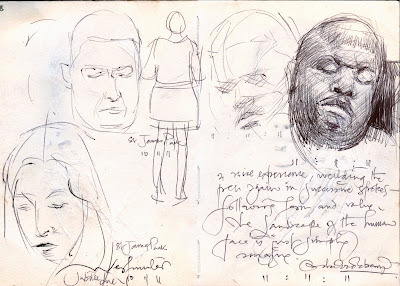 St James Park
10 11 11
St James Park
Westminster
Jubilee line 10 11 11
11 : 11 : 11
a nice experience, wielding the
pen again in successive strokes
following form and value.
the landscape of the human
face is just simply
amazing
11 : 11 : 11